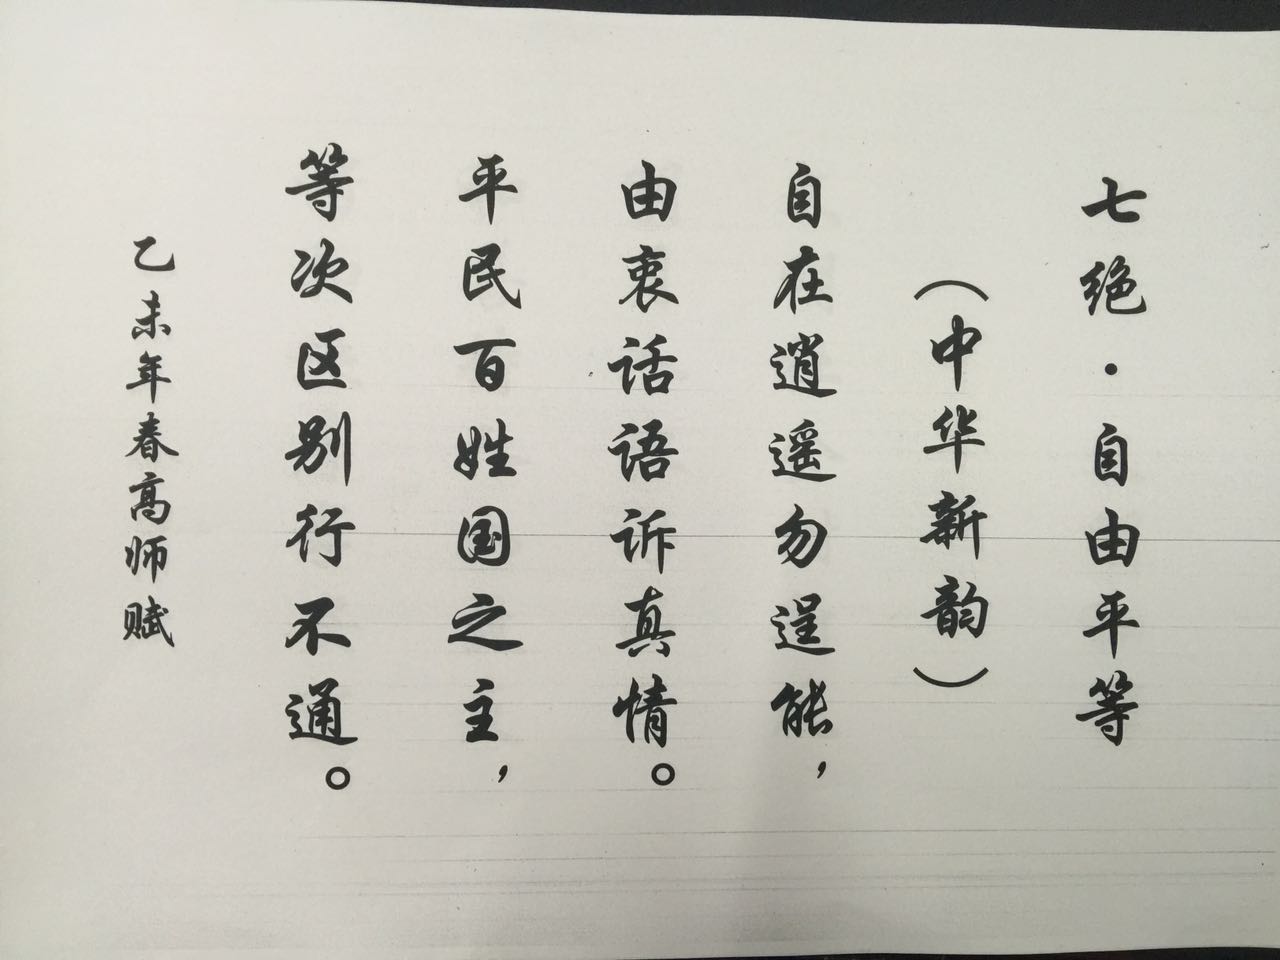 七绝·自由平等
（中华新韵）
自在逍遥勿逞能，
由衷话语诉真情。
平民百姓国之主，
等次区别行不通。
乙未年春高师赋